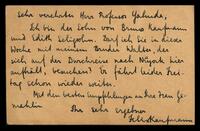 Sehr verehrter Herr Professor Yahuda,
Ich bin der Sohn von Bruno Kaufmann
und Edith Seligsohn. Darf ich Sie in dieser
Woche mit meinem Bruder Walter, der
sich auf der Durchreise nach Nüyork hier
aufhält, besuchen? Er fährt leider Frei-
tag schon wieder weiter.
Mit den besten Empfehlungen an Ihre Frau Ge-
mahlin
Ihr sehr ergebner
Kaufmann